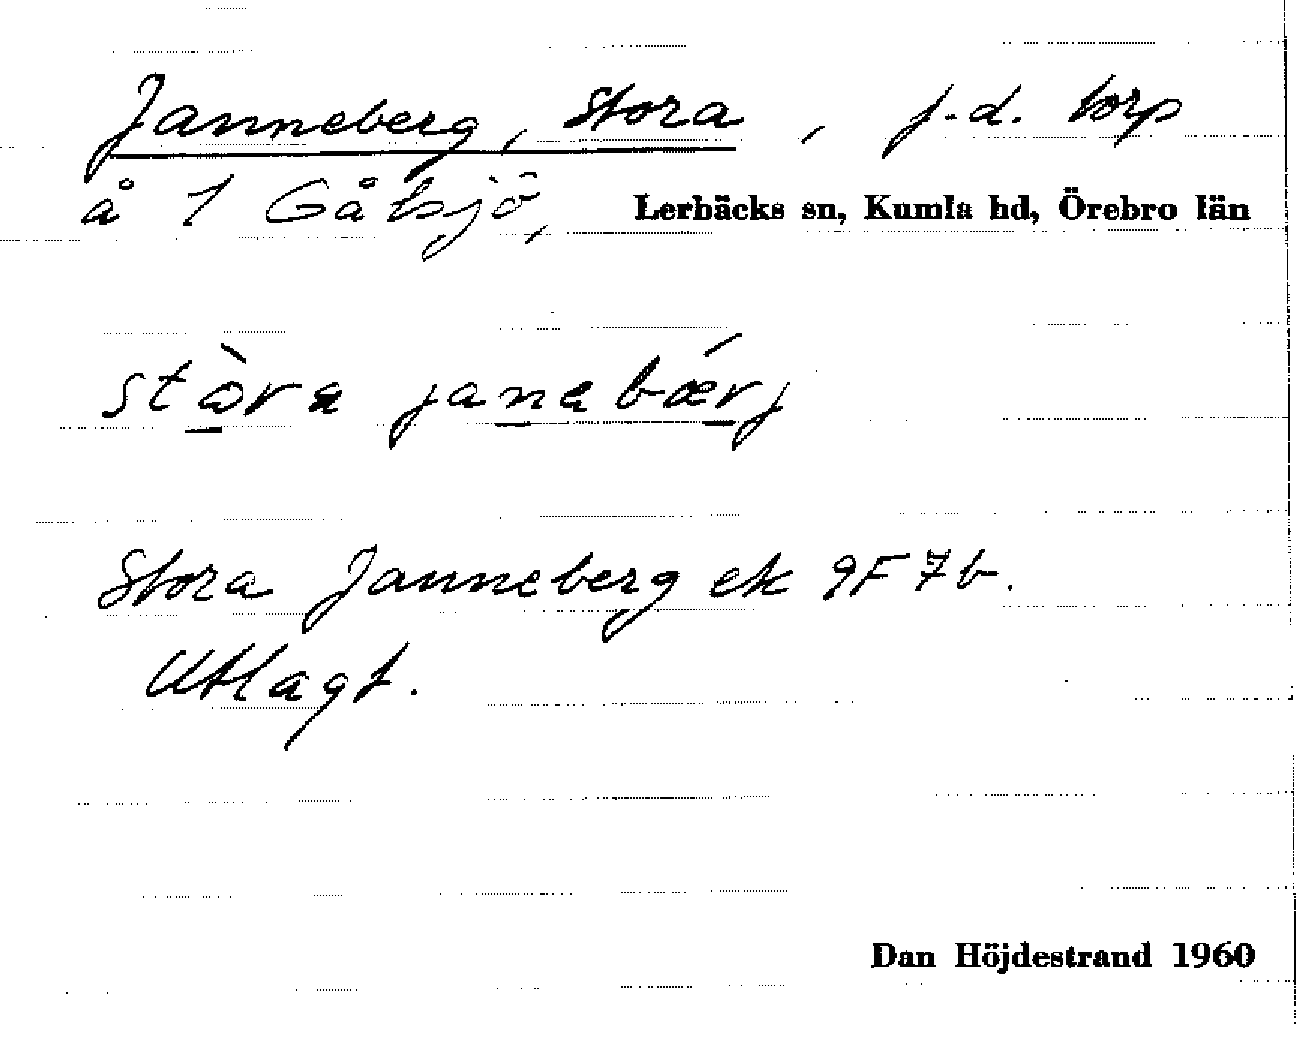 Janneberg, Stora, f.d. torp
å 1 Gåtsjö, Lerbäcks sn, Kumla hd, Örebro län
stò̱ra jaṉabǽ̱rj
Stora Janneberg ek 9F 7b.
Utlagt.
Dan Höjdestrand 1960